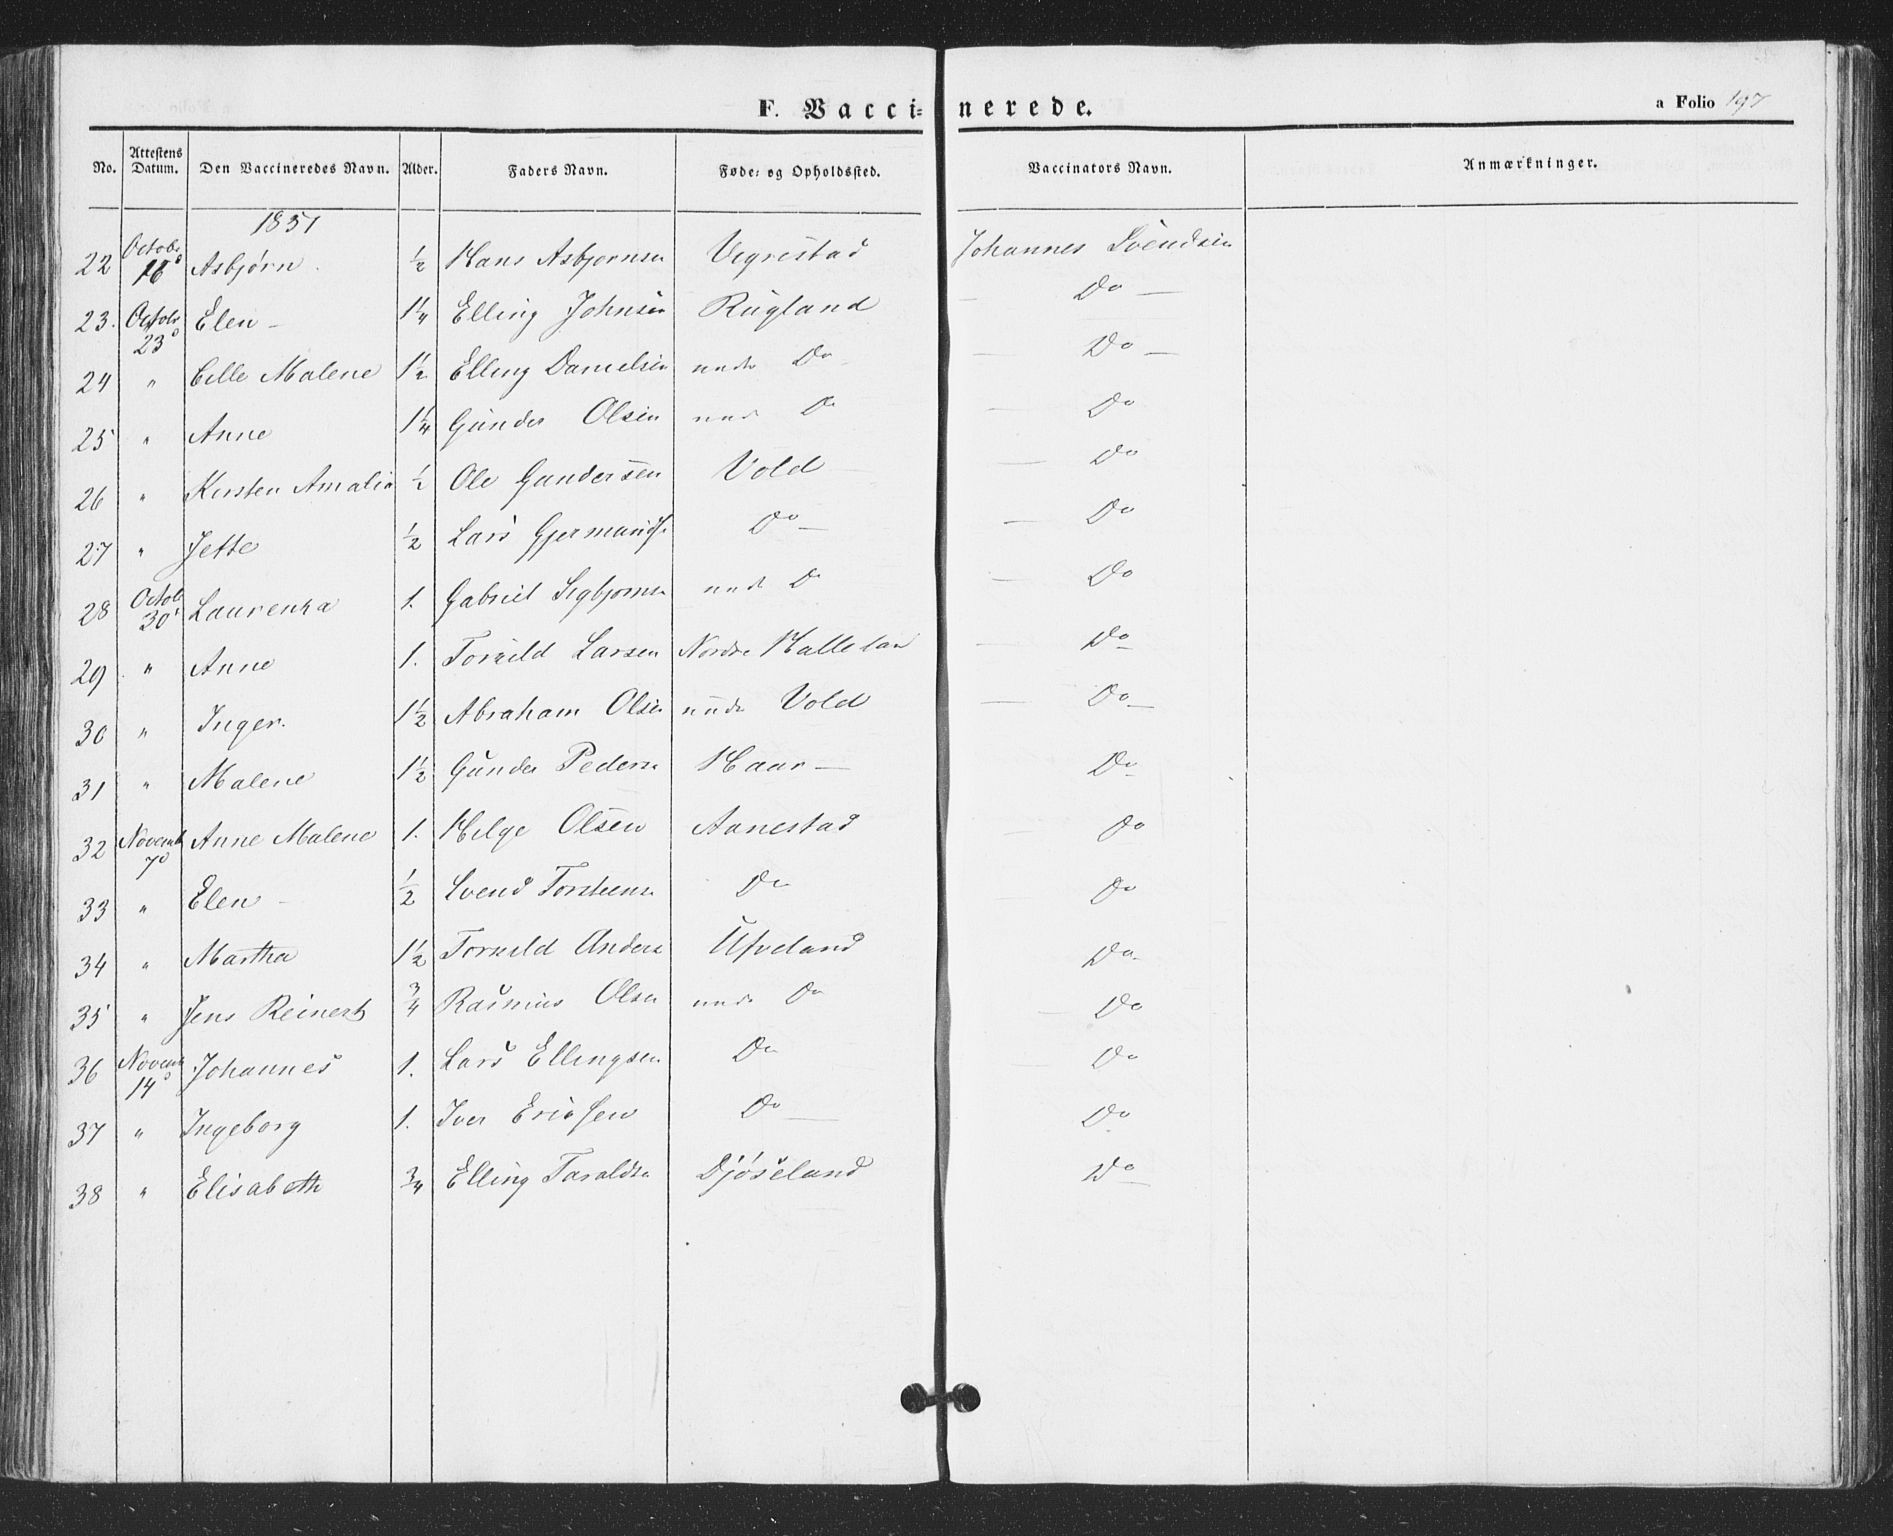 F. Vaccinerede.
a Folio 197
No. Attestens Datum. Den Vaccineredes Navn. Alder. Faders Navn. Føde- og Opholdssted. Vaccinators Navn. Anmærkninger.
1851
22 Octobr 16 Asbjørn ½ Hans Asbjørnsen Vigrestad Johannes Svendsen
23. Octobr 23 Elen 1¼ Elling Johnsen Rugland Do
24 " Celle Malene 1½ Elling Danielsen unde Do Do
25 " Anne 1¼ Gunder Olsen unde Do Do
26 " Kirsten Amalia ½ Ole Gundersen Vold Do
27 " Jette ½ Lars Do Do
28 Octob 30 Laurentza 1. Gabriel Sigbjørnsen unde Do Do
29 " Anne 1. Torkild Larsen Nordre Do
30 " Inger. 1½ Abraham Olsen unde Vold Do
31 " Malene 1½ Gunder Peders Haar Do
32 Novemb 7 Anne Malene 1. Helge Olsen Aanestad Do
33 " Elen ½ Svend Torsteens Do Do
34 " Martha 1½ Torkild Anders Ufveland Do
35 " Jens Reinert ¾ Rasmus Olsen unde Do Do
36 Novemb 14 Johannes 1. Lars Ellingsen Do Do
37 " Ingeborg 1. Iver Ericksen Do Do
38 " Elisabeth ¾ Elling Taralds Djøseland Do